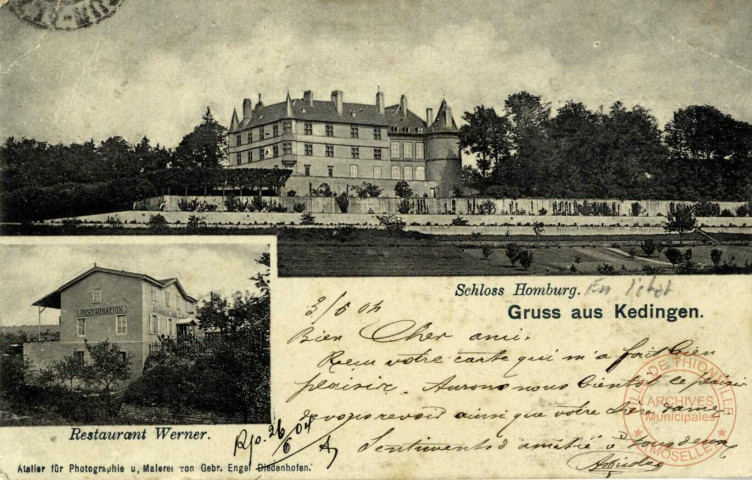 RESTAURATION
Schloss Homburg.
Gruss aus Kedingen.
3/6 04
Bien Cher ami.
Reçu votre carte qui m'a fait bien
plaisir. Aurons nous bientôt ce plaisir
de vous revoir ainsi que votre chère dame
Sentiments d'amitié à tous deux
Restaurant Werner.
Rép. 26/6 04
Atelier für Photographie u, Malerei von Gebr. Engel Diedenhofen.
VILLE DE THIONVILLE
ARCHIVES
Municipales
(MOSELLE)